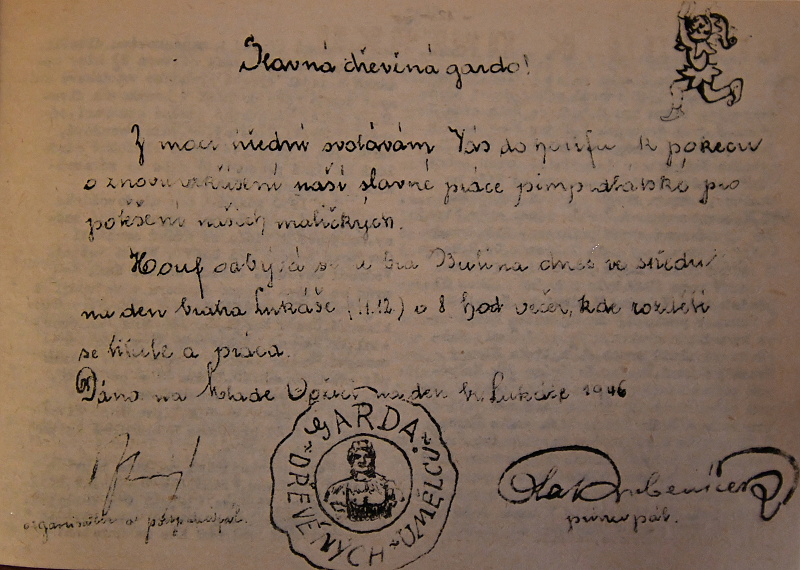 Slavná dřevěná gardo!
Z moci úřední svolávám Vás do houfu k pokecu
o znovuvzkříšení naší slavné práce pimprlátské pro
potěšení našich maličkých.
Houf odbývá se u bra Bulína dnes ve středu
na den bratra Lukáše (11.12.) o 8 hod večer, kde rozdělí
se titule a práca.
Dáno na Mladé Vožici na den br. Lukáše 1946
GARDA
DŘEVĚNÝCH UMĚLCŮ
organisační a
principál.